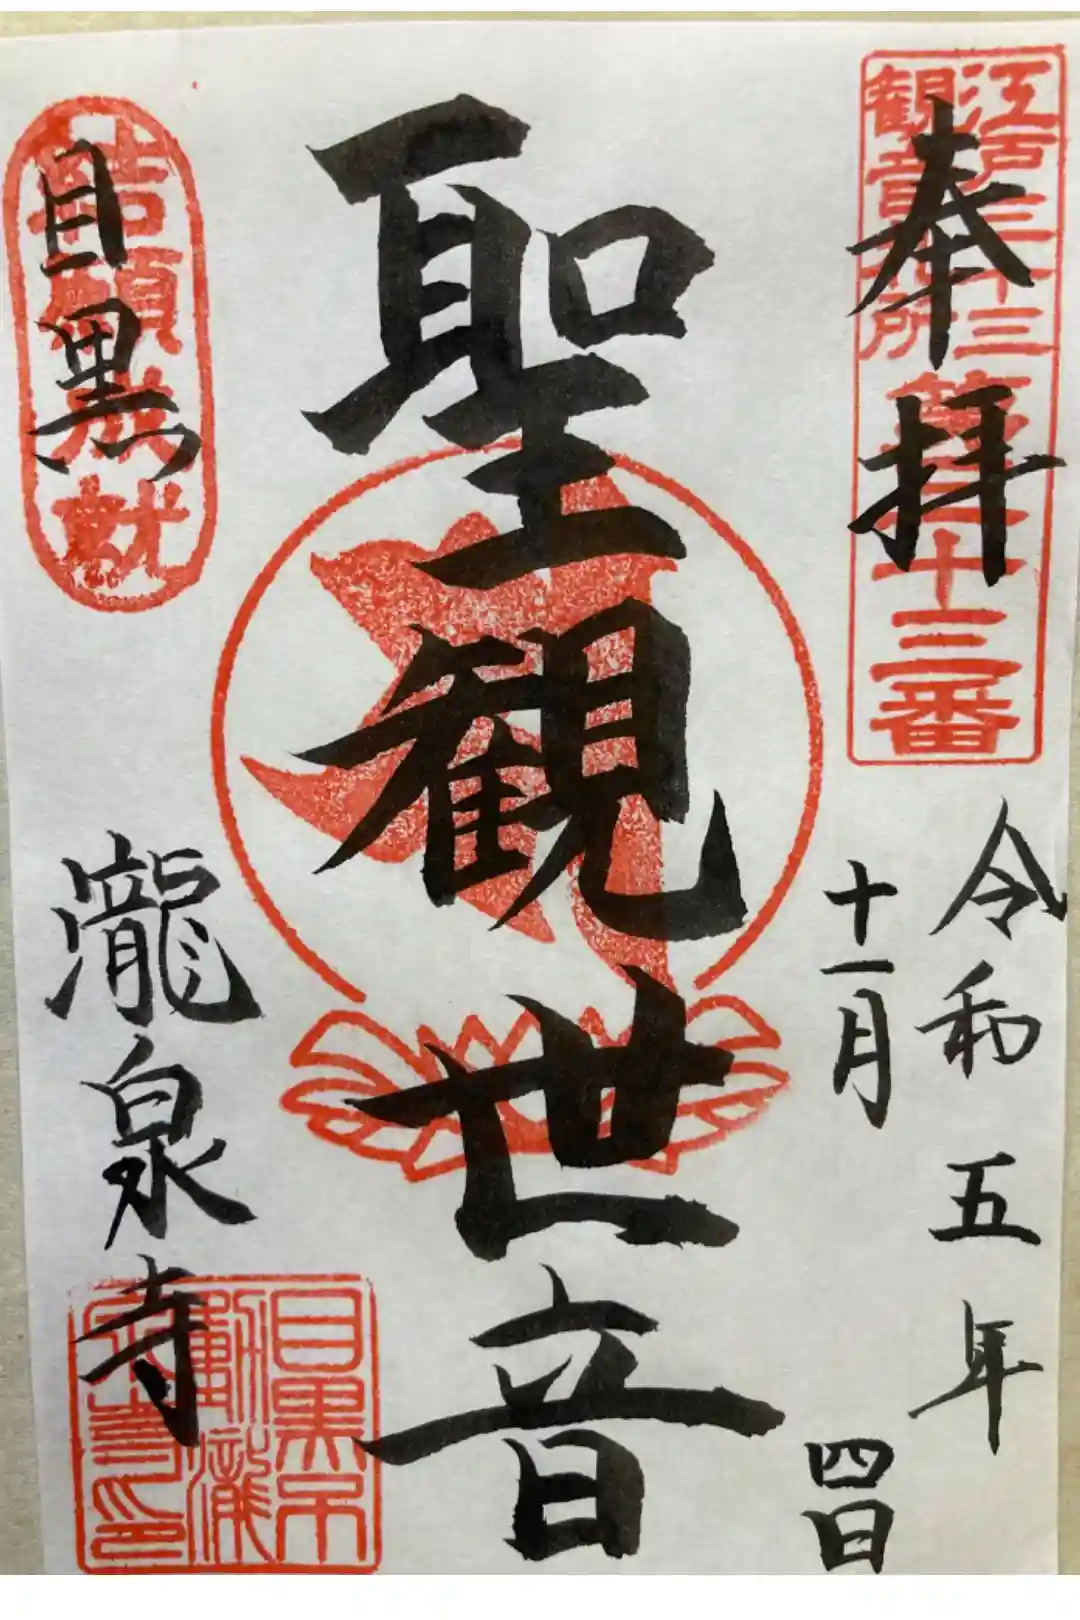 奉拝
江戸三十三
観音札所
第三十三番
令和五年
十一月四日
聖観世音
結願成就
目黒
瀧泉寺
目黒不
動瀧
泉寺印